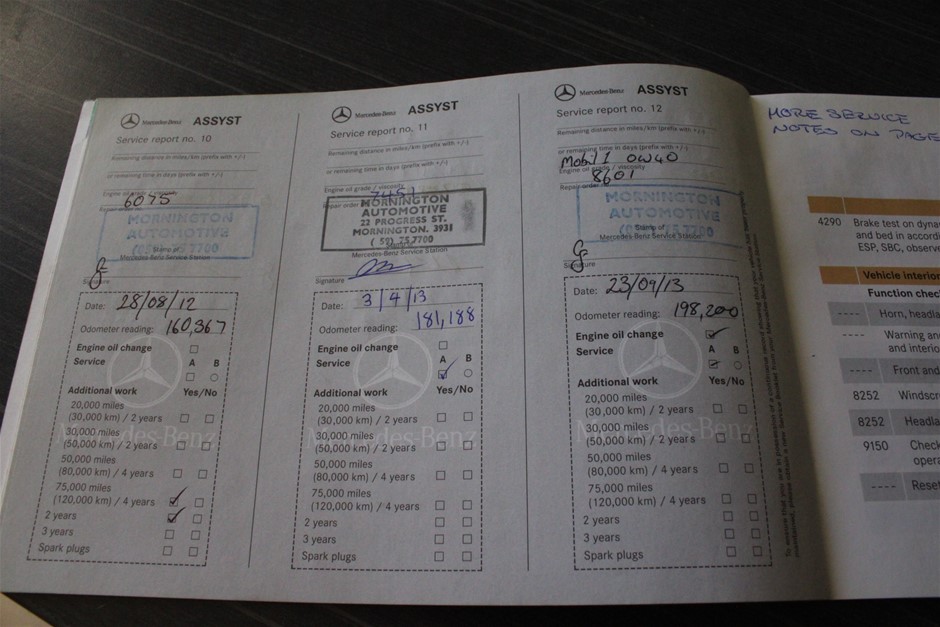 Mercedes-Benz ASSYST
Service report no. 10
Remaining distance in miles/km (prefix with +/-)
or remaining time in days (prefix with +/-)
Engine oil grade / viscosity
6075
Repair order
MORNINGTON
AUTOMOTIVE
7700
Stamp of
Mercedes-Benz Service Station
Signature
Date: 28/08/12
Odometer reading: 160,367
Engine oil change
Service A B
Additional work Yes/No
20,000 miles
(30,000 km) / 2 years
30,000 miles
(50,000 km) / 2 years
50,000 miles
(80,000 km) / 4 years
75,000 miles
(120,000 km) / 4 years
2 years
3 years
Spark plugs
Mercedes-Benz
Mercedes-Benz ASSYST
Service report no. 11
Remaining distance in miles/km (prefix with +/-)
or remaining time in days (prefix with +/-)
Engine oil grade / viscosity
7451
Repair order
MORNINGTON
AUTOMOTIVE
22 PROGRESS ST.
MORNINGTON. 3931
( 59) 75 7700
Mercedes-Benz Service Station
Signature
Date: 3/4/13
Odometer reading: 181,188
Engine oil change
Service A B
Additional work Yes/No
20,000 miles
(30,000 km) / 2 years
30,000 miles
(50,000 km) / 2 years
50,000 miles
(80,000 km) / 4 years
75,000 miles
(120,000 km) / 4 years
2 years
3 years
Spark plugs
Mercedes-Benz
Mercedes-Benz ASSYST
Service report no. 12
Remaining distance in miles/km (prefix with +/-)
or remaining time in days (prefix with +/-)
Mobil 1 0W40
Engine oil grade / viscosity
8601
Repair order
MORNINGTON
AUTOMOTIVE
7700
Stamp of
Mercedes-Benz Service Station
Signature
Date: 23/09/13
Odometer reading: 198,200
Engine oil change
Service A B
Additional work Yes/No
20,000 miles
(30,000 km) / 2 years
30,000 miles
(50,000 km) / 2 years
50,000 miles
(80,000 km) / 4 years
75,000 miles
(120,000 km) / 4 years
2 years
3 years
Spark plugs
Mercedes-Benz
MORE SERVICE
NOTES ON PAGE
4290 Brake test on dyna
and bed in accordi
ESP, SBC, observe
Vehicle interior
Function chec
---- Horn, headla
---- Warning an
and interio
---- Front and
8252 Windscr
8252 Headla
9150 Check
opera
---- Reset